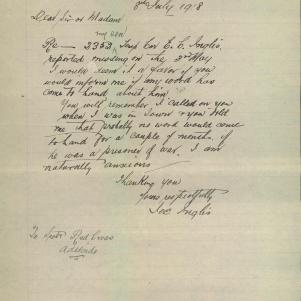 8th July 1918
Dear Sir or Madam
my son
Re — 2353 Tmp Cor E. C. Inglis,
reported missing on the 3rd May
I would deem it a favor if you
would inform me if any word has
come to hand about him
You will remember I called on you
when I was in Town & you told
me that probably no word would come
to hand for a couple of months if
he was a prisoner of war. I am
naturally anxious
Thanking you
Yours respectfully
Inglis
To Red Cross
Adelaide